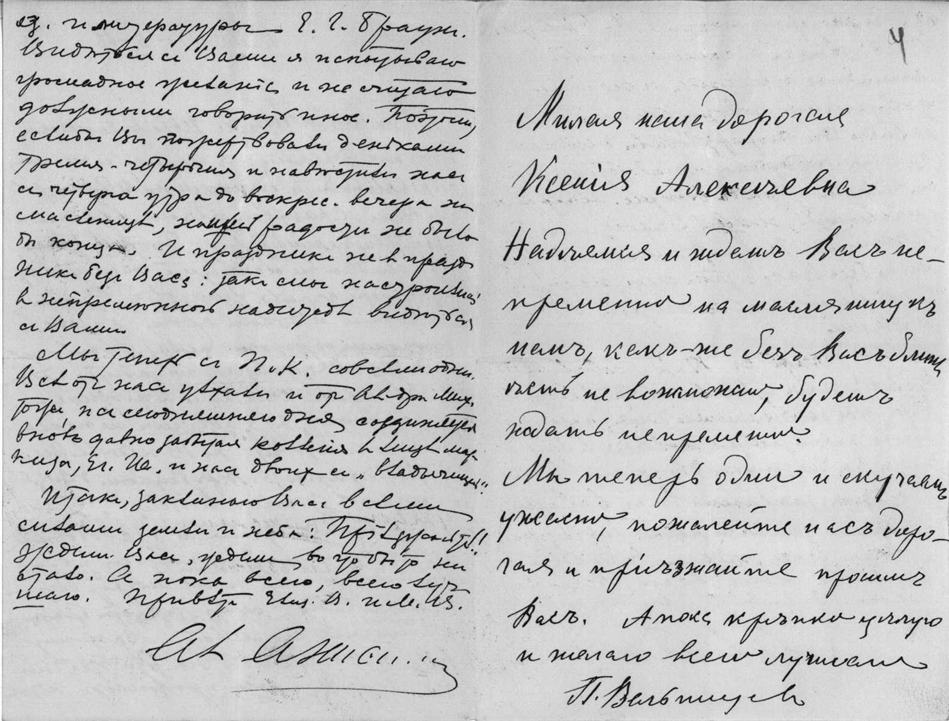 яз. и литературы Е. Г. Браун.
Видѣться съ Вами я испытываю
громадное и не считаю
говорить иное. Поэтому,
если бы Вы пожертвовали деньками
тремя-четырьмя и навѣстили насъ
съ четверга утра до воскрес. вечера на
масленицѣ, нашей радости не было
бы конца. И праздникъ не въ празд-
никъ безъ Васъ: такъ мы настроились
въ непремѣнной надеждѣ видѣться
съ Вами
Мы теперь съ П. К. совсѣмъ одни.
Всѣ отъ насъ уѣхали и
на сегодняшняго дня соединяется
вновь давно забытая компанія въ лицѣ
и насъ двоихъ съ „владычицей“.
Итакъ, заклинаю Васъ всѣми
силами земли и неба: Пріѣзжайте!!
Ждемъ Васъ, ждемъ во что бы то ни
стало. А пока всего, всего
Привѣтъ Елиз. В. и М. И.
4
Милая наша дорогая
Ксенія Алексѣевна
Надѣемся и ждемъ Васъ не-
премѣнно на масляницу къ
намъ, какъ-же безъ Васъ блины
ѣсть не возможно, будемъ
ждать непремѣнно.
Мы теперь одни и скучаемъ
ужасно, пожалейте насъ доро-
гая и пріѣзжайте просимъ
Васъ. А пока крѣпко цѣлую
и желаю всего лучшаго
П.